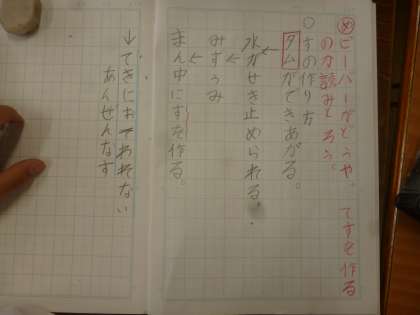 め ビーバーがどうや、てすを作る
のか読みとろう。
○すの作り方
ダムができあがる。
水がせき止められる。
みずうみ
まん中にすを作る。
↓てきにおそわれない
あんぜんなす